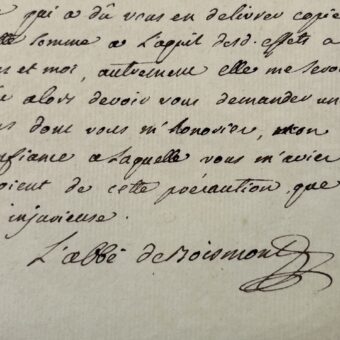 qui a dû vous en delivrer copie
somme a l'aquit desd. effets a
et moi, autrement elle me seroi
alors devoir vous demander un
dont vous m'honoriez, mon
fiance a laquelle vous m'avier
oient de cette précaution que
injurieuse.
L'abbé de Boismont